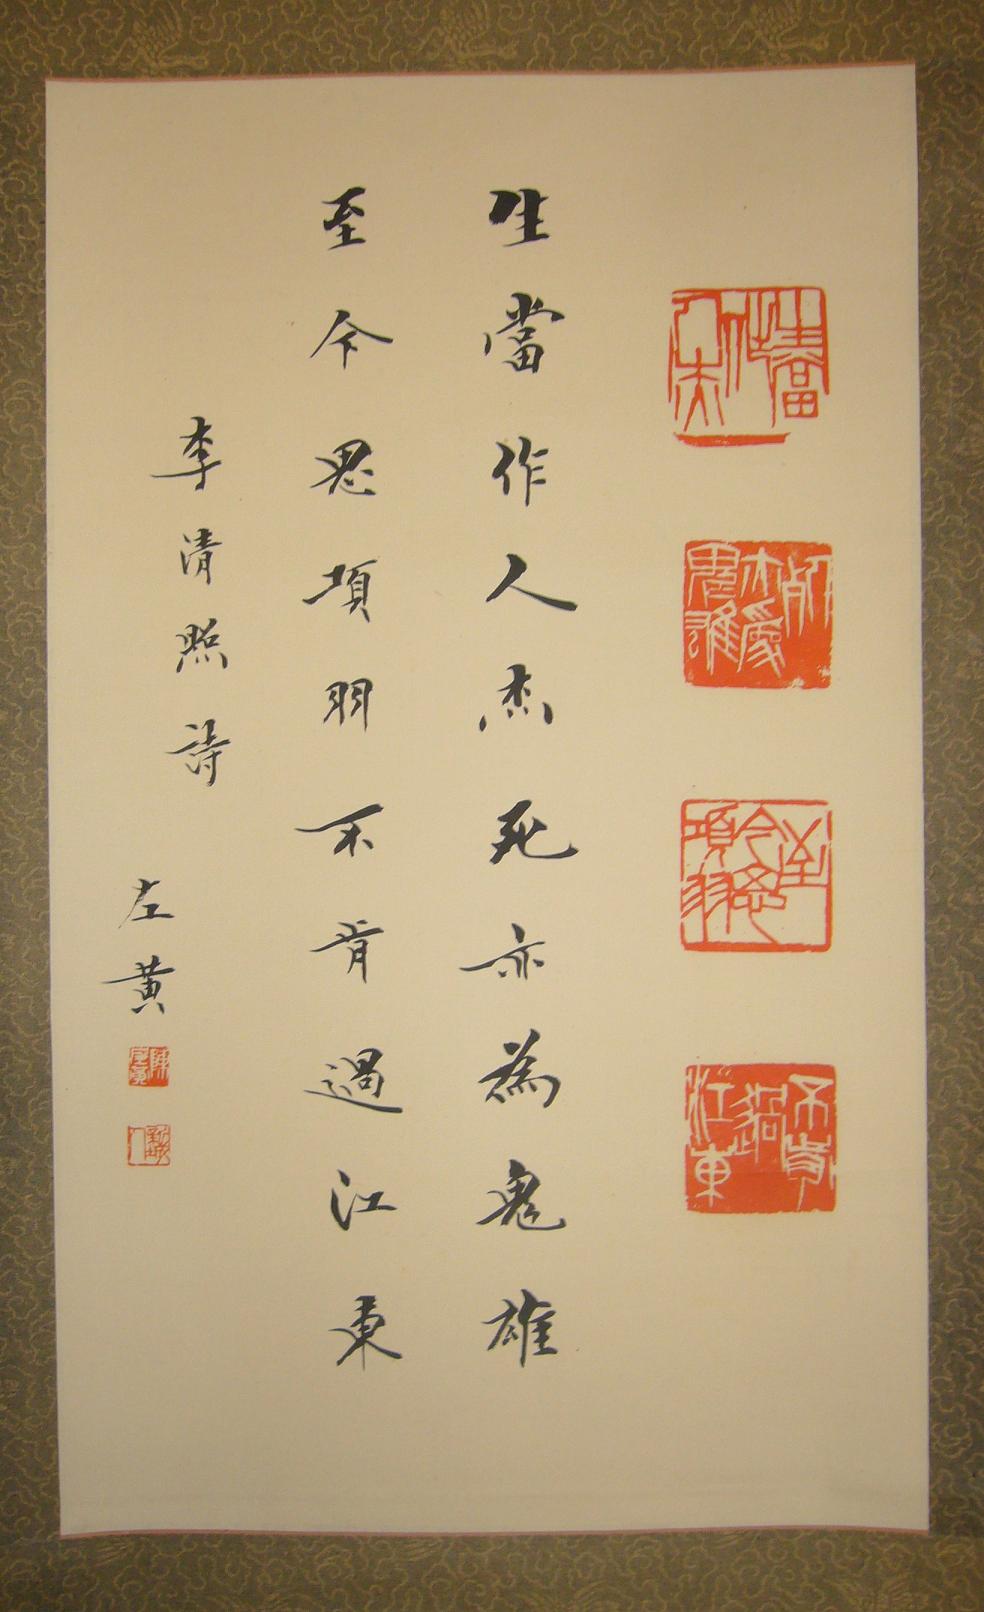 生當作人杰
死亦為鬼雄
至今思項羽
不肯過江東
生當作人杰死亦為鬼雄
至今思項羽不肯過江東
李清照詩
左黃